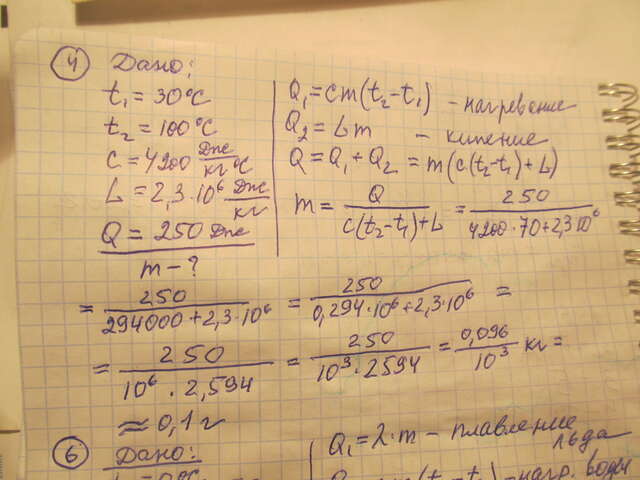 4 Дано:
t₁ = 30°C
t₂ = 100°C
c = 4200 Дж/кг°C
L = 2,3·10⁶ Дж/кг
Q = 250 Дж
m - ?
Q₁ = cm(t₂-t₁) - нагревание
Q₂ = Lm - кипение
Q = Q₁ + Q₂ = m(c(t₂-t₁) + L)
m = Q/(c(t₂-t₁)+L) = 250/(4200·70+2,3·10⁶)
= 250/(294000+2,3·10⁶) = 250/(0,294·10⁶+2,3·10⁶) =
= 250/(10⁶·2,594) = 250/(10³·2594) = 0,096/10³ кг =
≈ 0,1 г
6 Дано:
Q₁ = λ·m - плавление
льда
нагр. воды